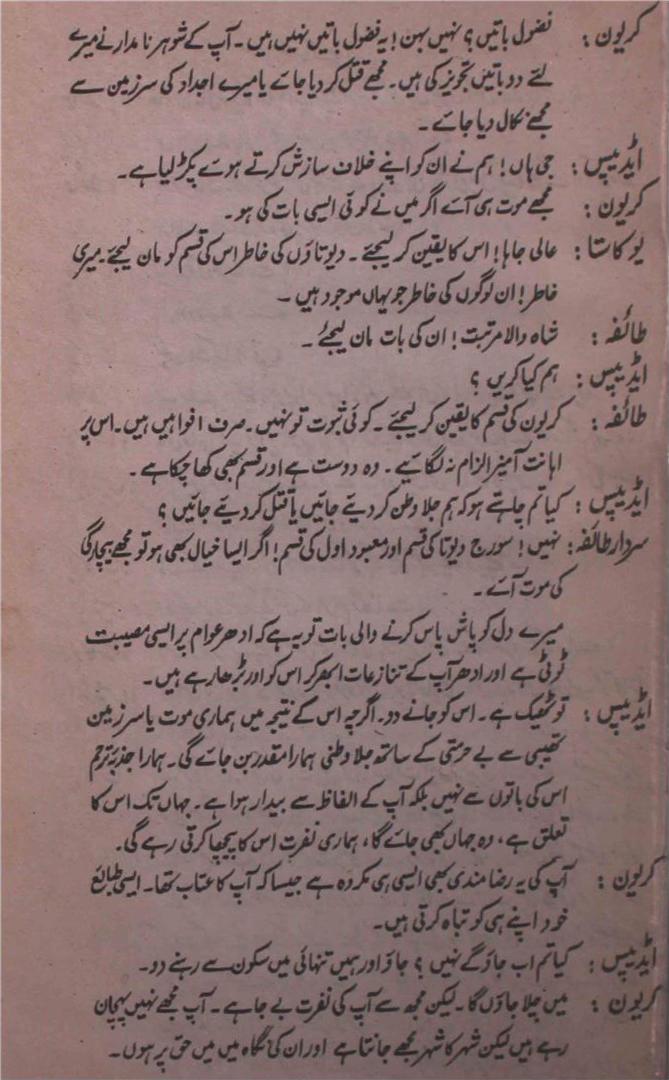 کریون : فضول باتیں؟ نہیں بہن! یہ فضول باتیں نہیں ہیں۔ آپ کے شوہر نامدار نے میرے
لئے دو باتیں تجویز کی ہیں۔ مجھے قتل کر دیا جائے یا میرے اجداد کی سرزمین سے
مجھے نکال دیا جائے۔
ایڈیپس : جی ہاں! ہم نے ان کو اپنے خلاف سازش کرتے ہوئے پکڑ لیا ہے۔
کریون : مجھے موت ہی آئے اگر میں نے کوئی ایسی بات کی ہو۔
یوکاستا : عالی جاہ! اس کا یقین کر لیجئے۔ دیوتاؤں کی خاطر اس کی قسم کو مان لیجئے۔ میری
خاطر! ان لوگوں کی خاطر جو یہاں موجود ہیں۔
طائفہ : شاہ والا مرتبت! ان کی بات مان لیجئے۔
ایڈیپس : ہم کیا کریں؟
طائفہ : کریون کی قسم کا یقین کر لیجئے۔ کوئی ثبوت تو نہیں۔ صرف افواہیں ہیں۔ اس پر
اہانت آمیز الزام نہ لگائیے۔ وہ دوست ہے اور قسم بھی کھا چکا ہے۔
ایڈیپس : کیا تم چاہتے ہو کہ ہم جلا وطن کر دیئے جائیں یا قتل کر دیئے جائیں؟
سردار طائفہ : نہیں! سورج دیوتا کی قسم اور معبود اول کی قسم! اگر ایسا خیال بھی ہو تو مجھے بیچارگی
کی موت آئے۔
میرے دل کو پاش پاش کرنے والی بات تو یہ ہے کہ ادھر عوام پر ایسی مصیبت
ٹوٹی ہے اور ادھر آپ کے تنازعات ابھر کر اس کو اور بڑھا رہے ہیں۔
ایڈیپس : تو ٹھیک ہے۔ اس کو جانے دو۔ اگرچہ اس کے نتیجہ میں ہماری موت یا سرزمین
تھیبی سے بے حرمتی کے ساتھ جلا وطنی ہمارا مقدر بن جائے گی۔ ہمارا جذبۂ ترحم
اس کی باتوں سے نہیں بلکہ آپ کے الفاظ سے بیدار ہوا ہے۔ جہاں تک اس کا
تعلق ہے، وہ جہاں بھی جائے گا، ہماری نفرت اس کا پیچھا کرتی رہے گی۔
کریون : آپ کی یہ رضا مندی بھی ایسی ہی مکروہ ہے جیسا کہ آپ کا عتاب تھا۔ ایسی طبائع
خود اپنے ہی کو تباہ کرتی ہیں۔
ایڈیپس : کیا تم اب جاؤ گے نہیں؟ جاؤ اور ہمیں تنہائی میں سکون سے رہنے دو۔
کریون : میں چلا جاؤں گا۔ لیکن مجھ سے آپ کی نفرت بے جا ہے۔ آپ مجھے نہیں پہچان
رہے ہیں لیکن شہر کا شہر مجھے جانتا ہے اور ان کی نگاہ میں میں حق پر ہوں۔